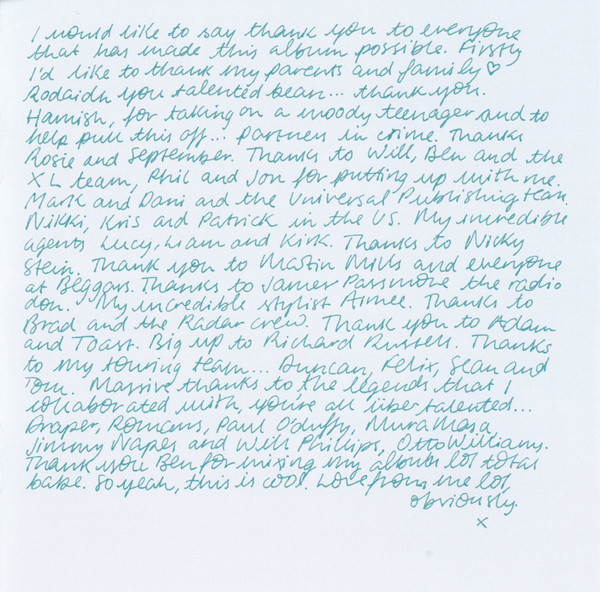 I would like to say thank you to everyone
that has made this album possible. Firstly
I'd like to thank my parents and family ♡
Rodaidh you talented bean... thank you.
Hamish, for taking on a moody teenager and to
help pull this off... partners in crime. Thanks
Rosie and September. Thanks to Will, Ben and the
XL team, Phil and Jon for putting up with me.
Mark and Dani and the Universal Publishing team.
Nikki, Kris and Patrick in the US. My incredible
agents Lucy, Liam and Kirk. Thanks to Nicky
Stein. Thank you to Martin Mills and everyone
at Beggars. Thanks to James Passmore the radio
don. My incredible stylist Aimee. Thanks to
Brad and the Radar crew. Thank you to Adam
and Toast. Big up to Richard Russell. Thanks
to my touring team... Duncan, Felix, Sean and
Tom. Massive thanks to the legends that I
collaborated with, you're all über-talented...
Draper, Romans, Paul O'duffy, Mura Masa,
Jimmy Napes and Will Phillips, Otto Williams.
Thank you Ben for mixing my album lol total
babe. So yeah, this is cool. Love from me lol
obviously.
x